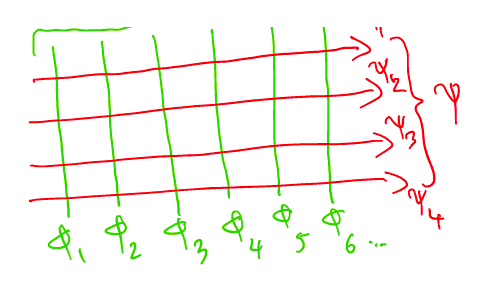 ψ₂
ψ₃
ψ
ψ₄
ϕ₁ ϕ₂ ϕ₃ ϕ₄ ϕ₅ ϕ₆ ...